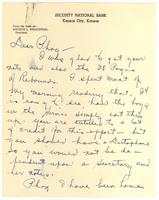 SECURITY NATIONAL BANK
Kansas City, Kansas
From the desk of—
President
Dear Phog—
I was glad to get your
note and also the 28 Pages
of Rebounds. I spent most of
my morning reading that. It
is song & see how the boys
in the forms simply eat this
up. You are entitled to a lot
of credit for this effort — but
you should have a Dictaphone
so you would not be de-
pendent upon a Secretary and
her notes.
Phog I have been home